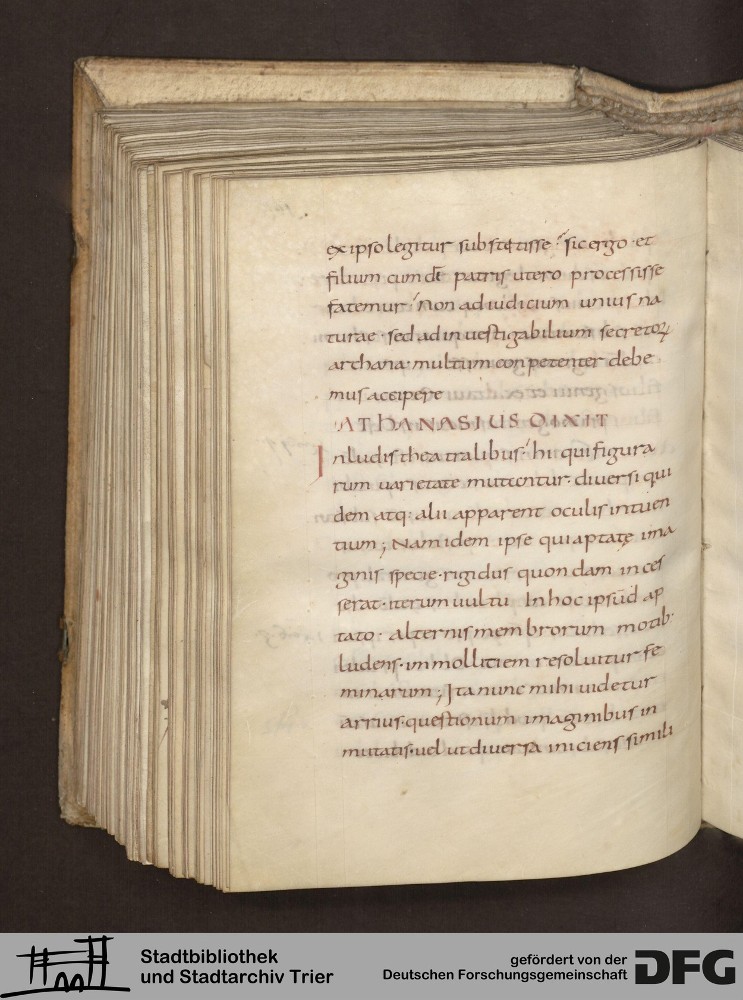 ex ipso legitur substetisse sic ergo · et
filium cum de patris utero processisse
fatemur Non ad iudicium unius na
turae · sed ad inuestigabilium secretoꝝ
archana · multum conpetenter debe
mus accipere
ATHANASIUS DIXIT
In ludis theatralibus hi qui figura
rum uarietate mutantur · diuersi qui
dem atq· alii apparent oculis intuen
tium ; Nam idem ipse qui aptatę ima
ginis specie · rigidus quondam inces
serat · iterum uultu In hoc ipsūd ap
tato · alternis membrorum motib·
ludens · in mollitiem resoluitur fe
minarum ; Ita nunc mihi uidetur
arrius · questionum imaginibus in
mutatis · uel ut diuersa iniciens simili
Stadtbibliothek
und Stadtarchiv Trier
gefördert von der
Deutschen Forschungsgemeinschaft
DFG